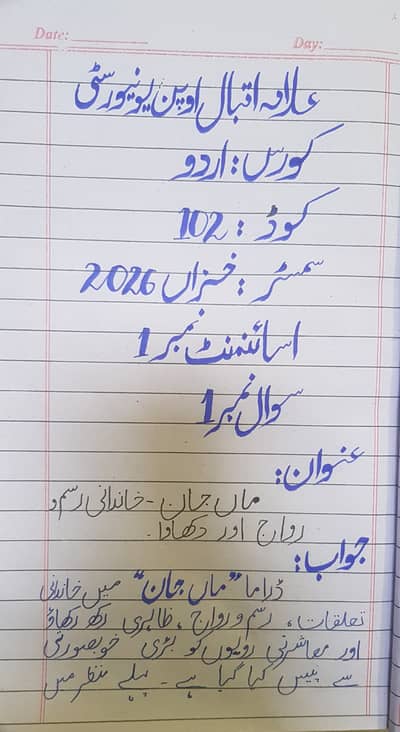 Date:
Day:
علامہ اقبال اوپن یونیورسٹی
کورس: اردو
کوڈ: 102
سمسٹر: خزاں 2026
اسائنمنٹ نمبر 1
سوال نمبر 1
عنوان:
ماں جان - خاندانی رسم و
رواج اور دکھاوا.
جواب:
ڈراما "ماں جان" میں خاندانی
تعلقات، رسم و رواج، ظاہری رکھ رکھاؤ
اور معاشرتی رویوں کو بڑی خوبصورتی
سے پیش کیا گیا ہے۔ پہلے منظر میں